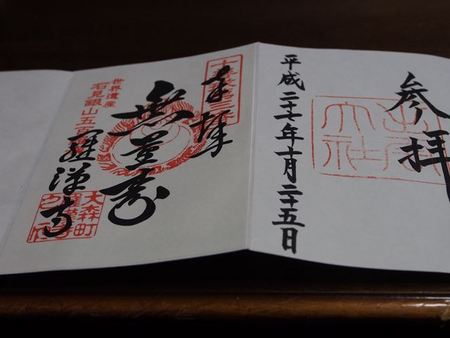 参拝
出雲大社
平成二十七年一月二十五日
奉拝
無量寿
世界遺産
石見銀山五百
羅漢寺
大森町